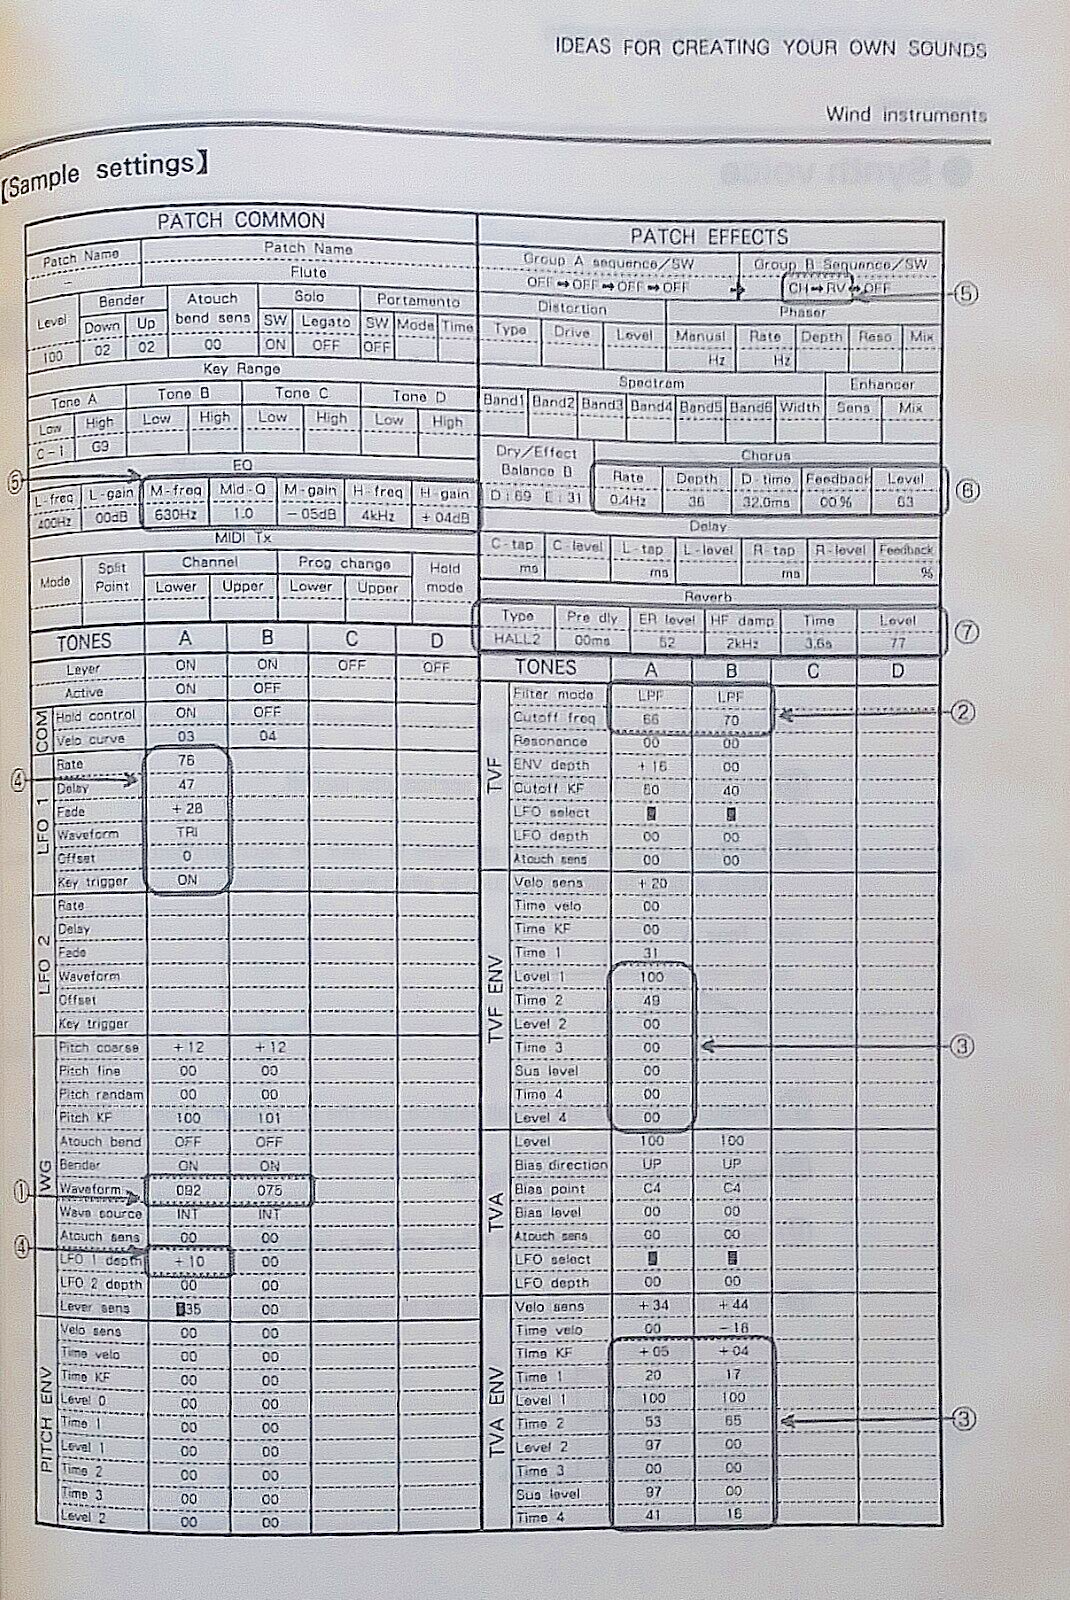 IDEAS FOR CREATING YOUR OWN SOUNDS
Wind instruments
【Sample settings】
PATCH COMMON
Patch Name Patch Name
– Flute
Level Bender Atouch bend sens Solo Portamento
Down Up SW Legato SW Mode Time
100 02 02 00 ON OFF OFF
Key Range
Tone A Tone B Tone C Tone D
Low High Low High Low High Low High
C-1 G9
EQ
⑤
L-freq L-gain M-freq Mid-Q M-gain H-freq H-gain
400Hz 00dB 630Hz 1.0 -05dB 4kHz +04dB
MIDI Tx
Mode Split Point Channel Prog change Hold mode
Lower Upper Lower Upper
TONES A B C D
Layer ON ON OFF OFF
Active ON OFF
COM
Hold control ON OFF
Velo curve 03 04
LFO 1
④
Rate 76
Delay 47
Fade +28
Waveform TRI
Offset 0
Key trigger ON
LFO 2
Rate
Delay
Fade
Waveform
Offset
Key trigger
WG
Pitch coarse +12 +12
Pitch fine 00 00
Pitch random 00 00
Pitch KF 100 101
Atouch bend OFF OFF
Bender ON ON
① Waveform 092 075
Wave source INT INT
Atouch sens 00 00
④ LFO 1 depth +10 00
LFO 2 depth 00 00
Lever sens 35 00
PITCH ENV
Velo sens 00 00
Time velo 00 00
Time KF 00 00
Level 0 00 00
Time 1 00 00
Level 1 00 00
Time 2 00 00
Time 3 00 00
Level 2 00 00
PATCH EFFECTS
Group A sequence/SW Group B Sequence/SW
OFF➡OFF➡OFF➡OFF ➡ CH➡RV➡OFF ⑤
Distortion Phaser
Type Drive Level Manual Rate Depth Reso Mix
Hz Hz
Spectram Enhancer
Band1 Band2 Band3 Band4 Band5 Band6 Width Sens Mix
Dry/Effect Balance B Chorus
Rate Depth D-time Feedback Level
D:69 E:31 0.4Hz 36 32.0ms 00% 63 ⑥
Delay
C-tap C-level L-tap L-level R-tap R-level Feedback
ms ms ms %
Reverb
Type Pre dly ER level HF damp Time Level
HALL2 00ms 52 2kHz 3.6s 77 ⑦
TONES A B C D
TVF
Filter mode LPF LPF
Cutoff freq 66 70 ②
Resonance 00 00
ENV depth +16 00
Cutoff KF 50 40
LFO select
LFO depth 00 00
Atouch sens 00 00
TVF ENV
Velo sens +20
Time velo 00
Time KF 00
Time 1 31
Level 1 100
Time 2 49
Level 2 00
Time 3 00 ③
Sus level 00
Time 4 00
Level 4 00
TVA
Level 100 100
Bias direction UP UP
Bias point C4 C4
Bias level 00 00
Atouch sens 00 00
LFO select
LFO depth 00 00
TVA ENV
Velo sens +34 +44
Time velo 00 -16
Time KF +05 +04
Time 1 20 17
Level 1 100 100
Time 2 53 65 ③
Level 2 97 00
Time 3 00 00
Sus level 97 00
Time 4 41 16